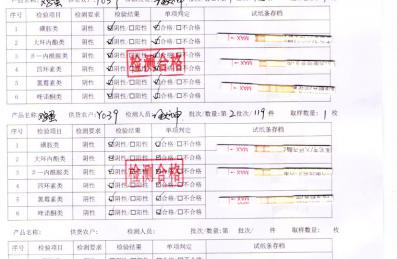 序号 检验项目 检测要求 检验结果 单项判定 试纸条存档
1 磺胺类 阴性 ☑阴性 □阳性 ☑合格 □不合格
2 大环内酯类 阴性 ☑阴性 □阳性 ☑合格 □不合格
3 β—内酰胺类 阴性 ☑阴性 □阳性 ☑合格 □不合格
4 四环素类 阴性 ☑阴性 □阳性 ☑合格 □不合格
5 氯霉素类 阴性 ☑阴性 □阳性 ☑合格 □不合格
6 喹诺酮类 阴性 ☑阴性 □阳性 ☑合格 □不合格
检测合格
MAX
MAX
MAX
MAX
产品名称: 供货农户: Y039 检测人员: 批次/数量:第 2 批次/ 119 件 取样数量: 1 枚
序号 检验项目 检测要求 检验结果 单项判定 试纸条存档
1 磺胺类 阴性 ☑阴性 □阳性 ☑合格 □不合格
2 大环内酯类 阴性 ☑阴性 □阳性 ☑合格 □不合格
3 β—内酰胺类 阴性 ☑阴性 □阳性 ☑合格 □不合格
4 四环素类 阴性 ☑阴性 □阳性 ☑合格 □不合格
5 氯霉素类 阴性 ☑阴性 □阳性 ☑合格 □不合格
6 喹诺酮类 阴性 ☑阴性 □阳性 ☑合格 □不合格
检测合格
产品名称: 供货农户: 检测人员: 批次/数量:第 批次/ 件 取样数量: 枚
序号 检验项目 检测要求 检验结果 单项判定 试纸条存档